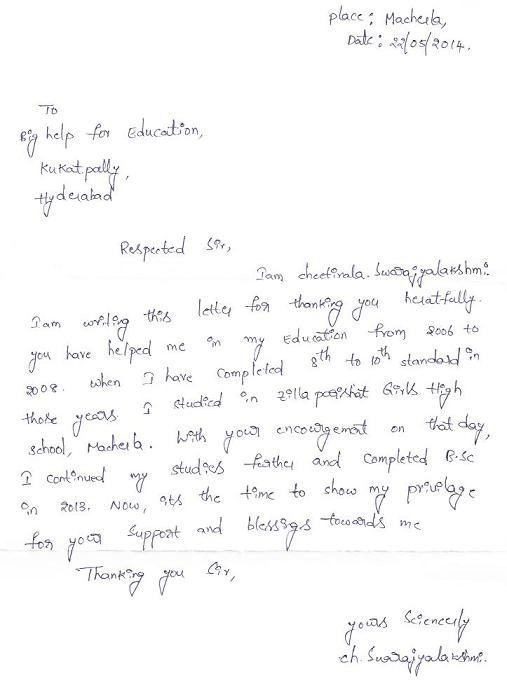 place: Macherla,
Date: 22/05/2014.
To
Big help for Education,
Kukatpally,
Hyderabad
Respected Sir,
Iam cheetirala. Swarajyalakshmi.
Iam writing this letter for thanking you heratfully.
you have helped me in my Education from 2006 to
2008. when I have completed 8th to 10th standard in
those years I studied in zilla parishat Girls High
school, Macherla. With your encourgement on that day,
I continued my studies further and completed B.Sc
in 2013. Now, its the time to show my privilage
for your support and blessigs towards me
Thanking you Sir,
yours Sciencerly
ch. Swarajyalakshmi.